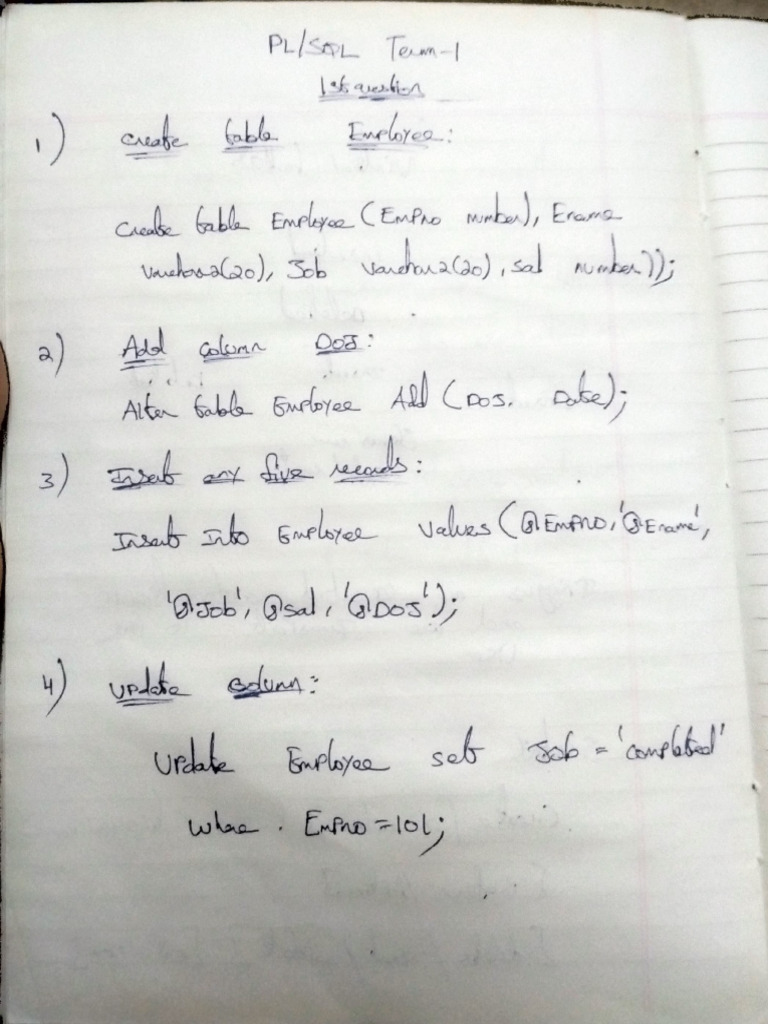 PL/SQL Term-1
1st question
1) create table Employee:
Create table Employee (EmpNo number), Ename
varchar2(20), Job varchar2(20), sal number));
2) Add column DOJ:
Alter table Employee Add (DOJ. Date);
3) Insert any five records:
Insert Into Employee values (@EmpNO, '@Ename',
'@Job', @sal, '@DOJ');
4) update column:
Update Employee set Job = 'completed'
where . EmpNo = 101;